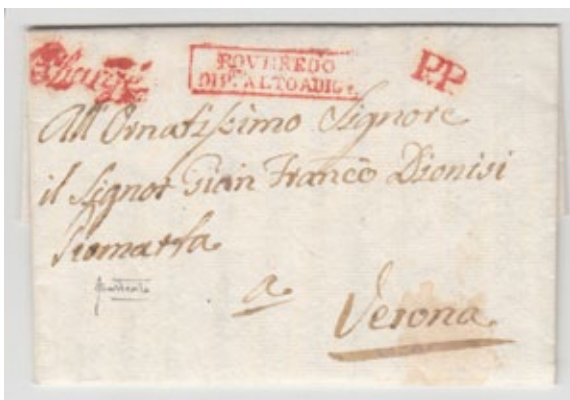 Chargé
ROVEREDO
DIP. ALTO ADIGE
P.P.
All'Ornatissimo Signore
il Signor Gian Franco Dionisi
a
Verona